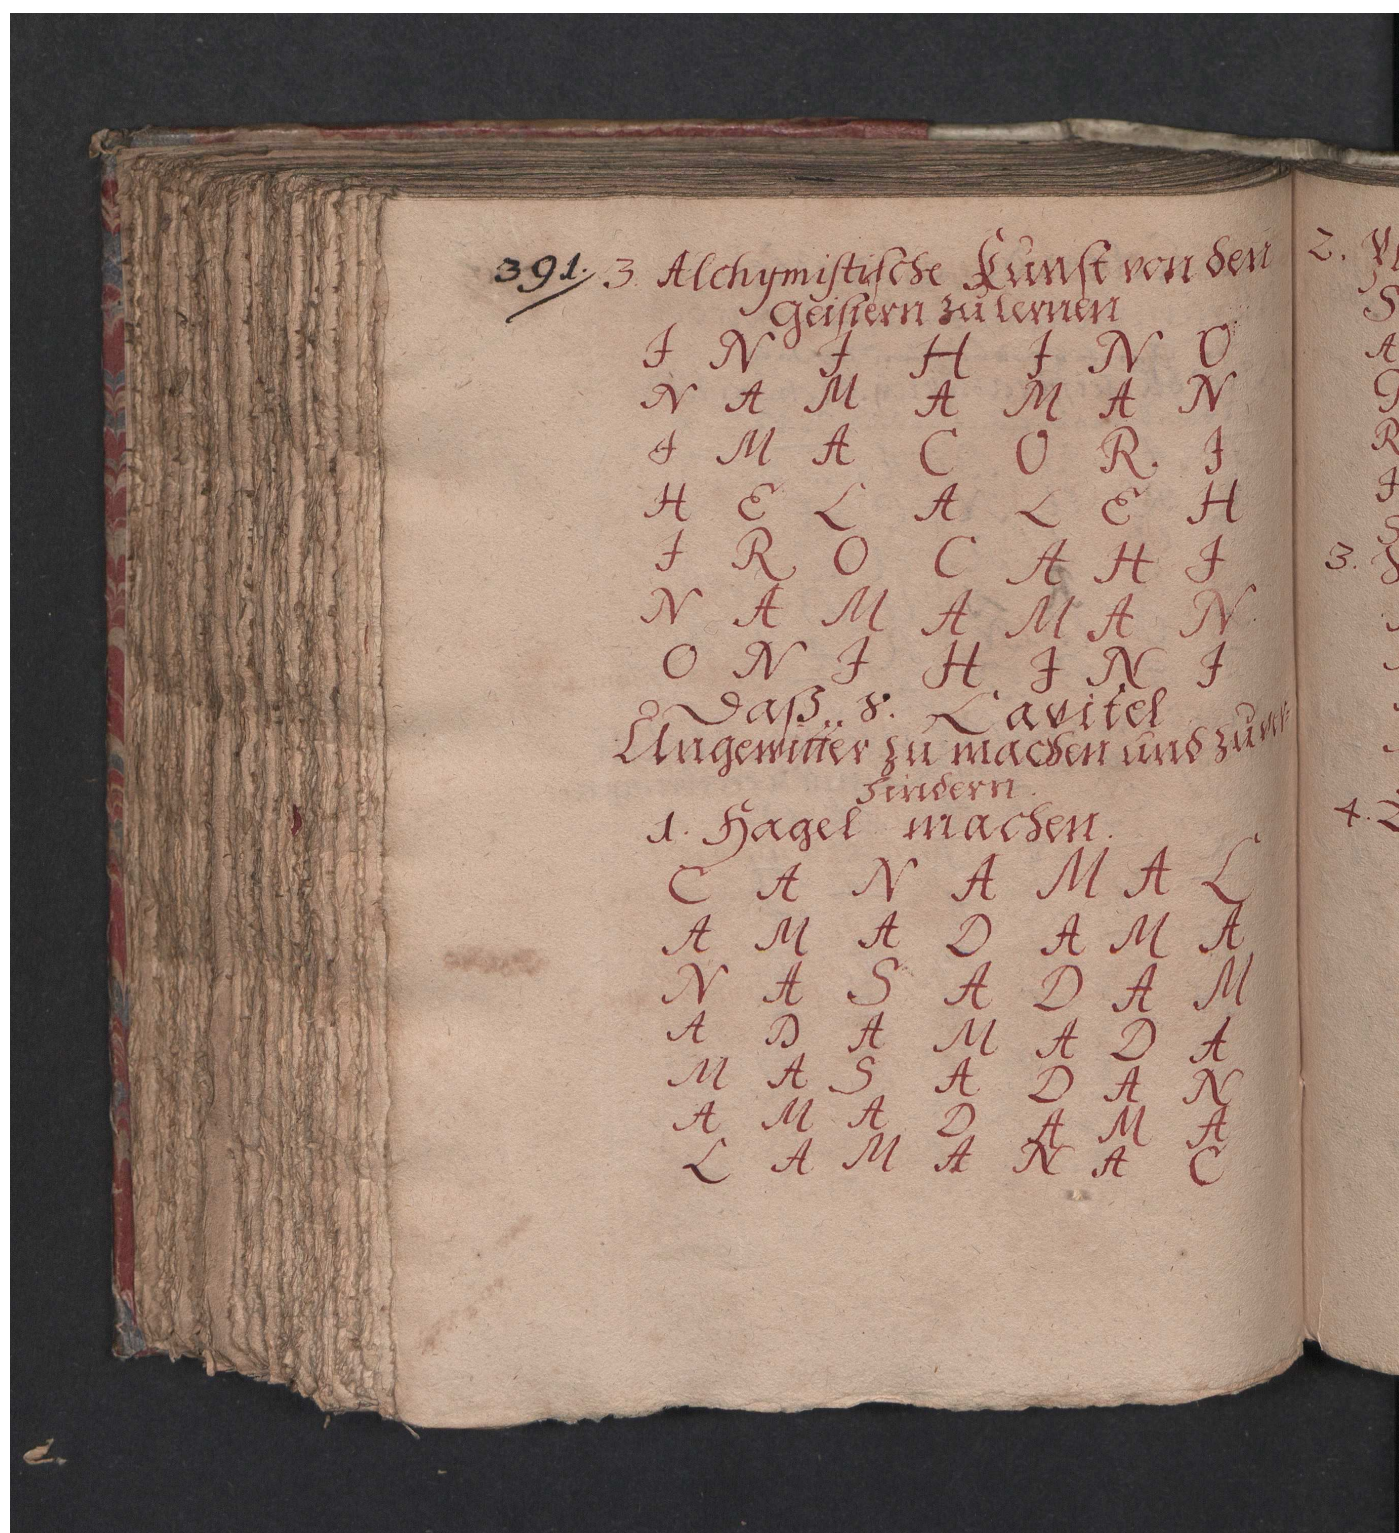 391. 3. Alchymistische Kunst von den
Geistern zu lernen
I N I H I N O
N A M A M A N
I M A C O R I
H E L A L E H
I R O C A H I
N A M A M A N
O N I H I N I
Daß 8. Cavitel
Ungewitter zu machen und zu ver
hindern
1. Hagel machen.
C A N A M A L
A M A D A M A
N A S A D A M
A D A M A D A
M A S A D A N
A M A D A M A
L A M A N A C
2.
3.
4.